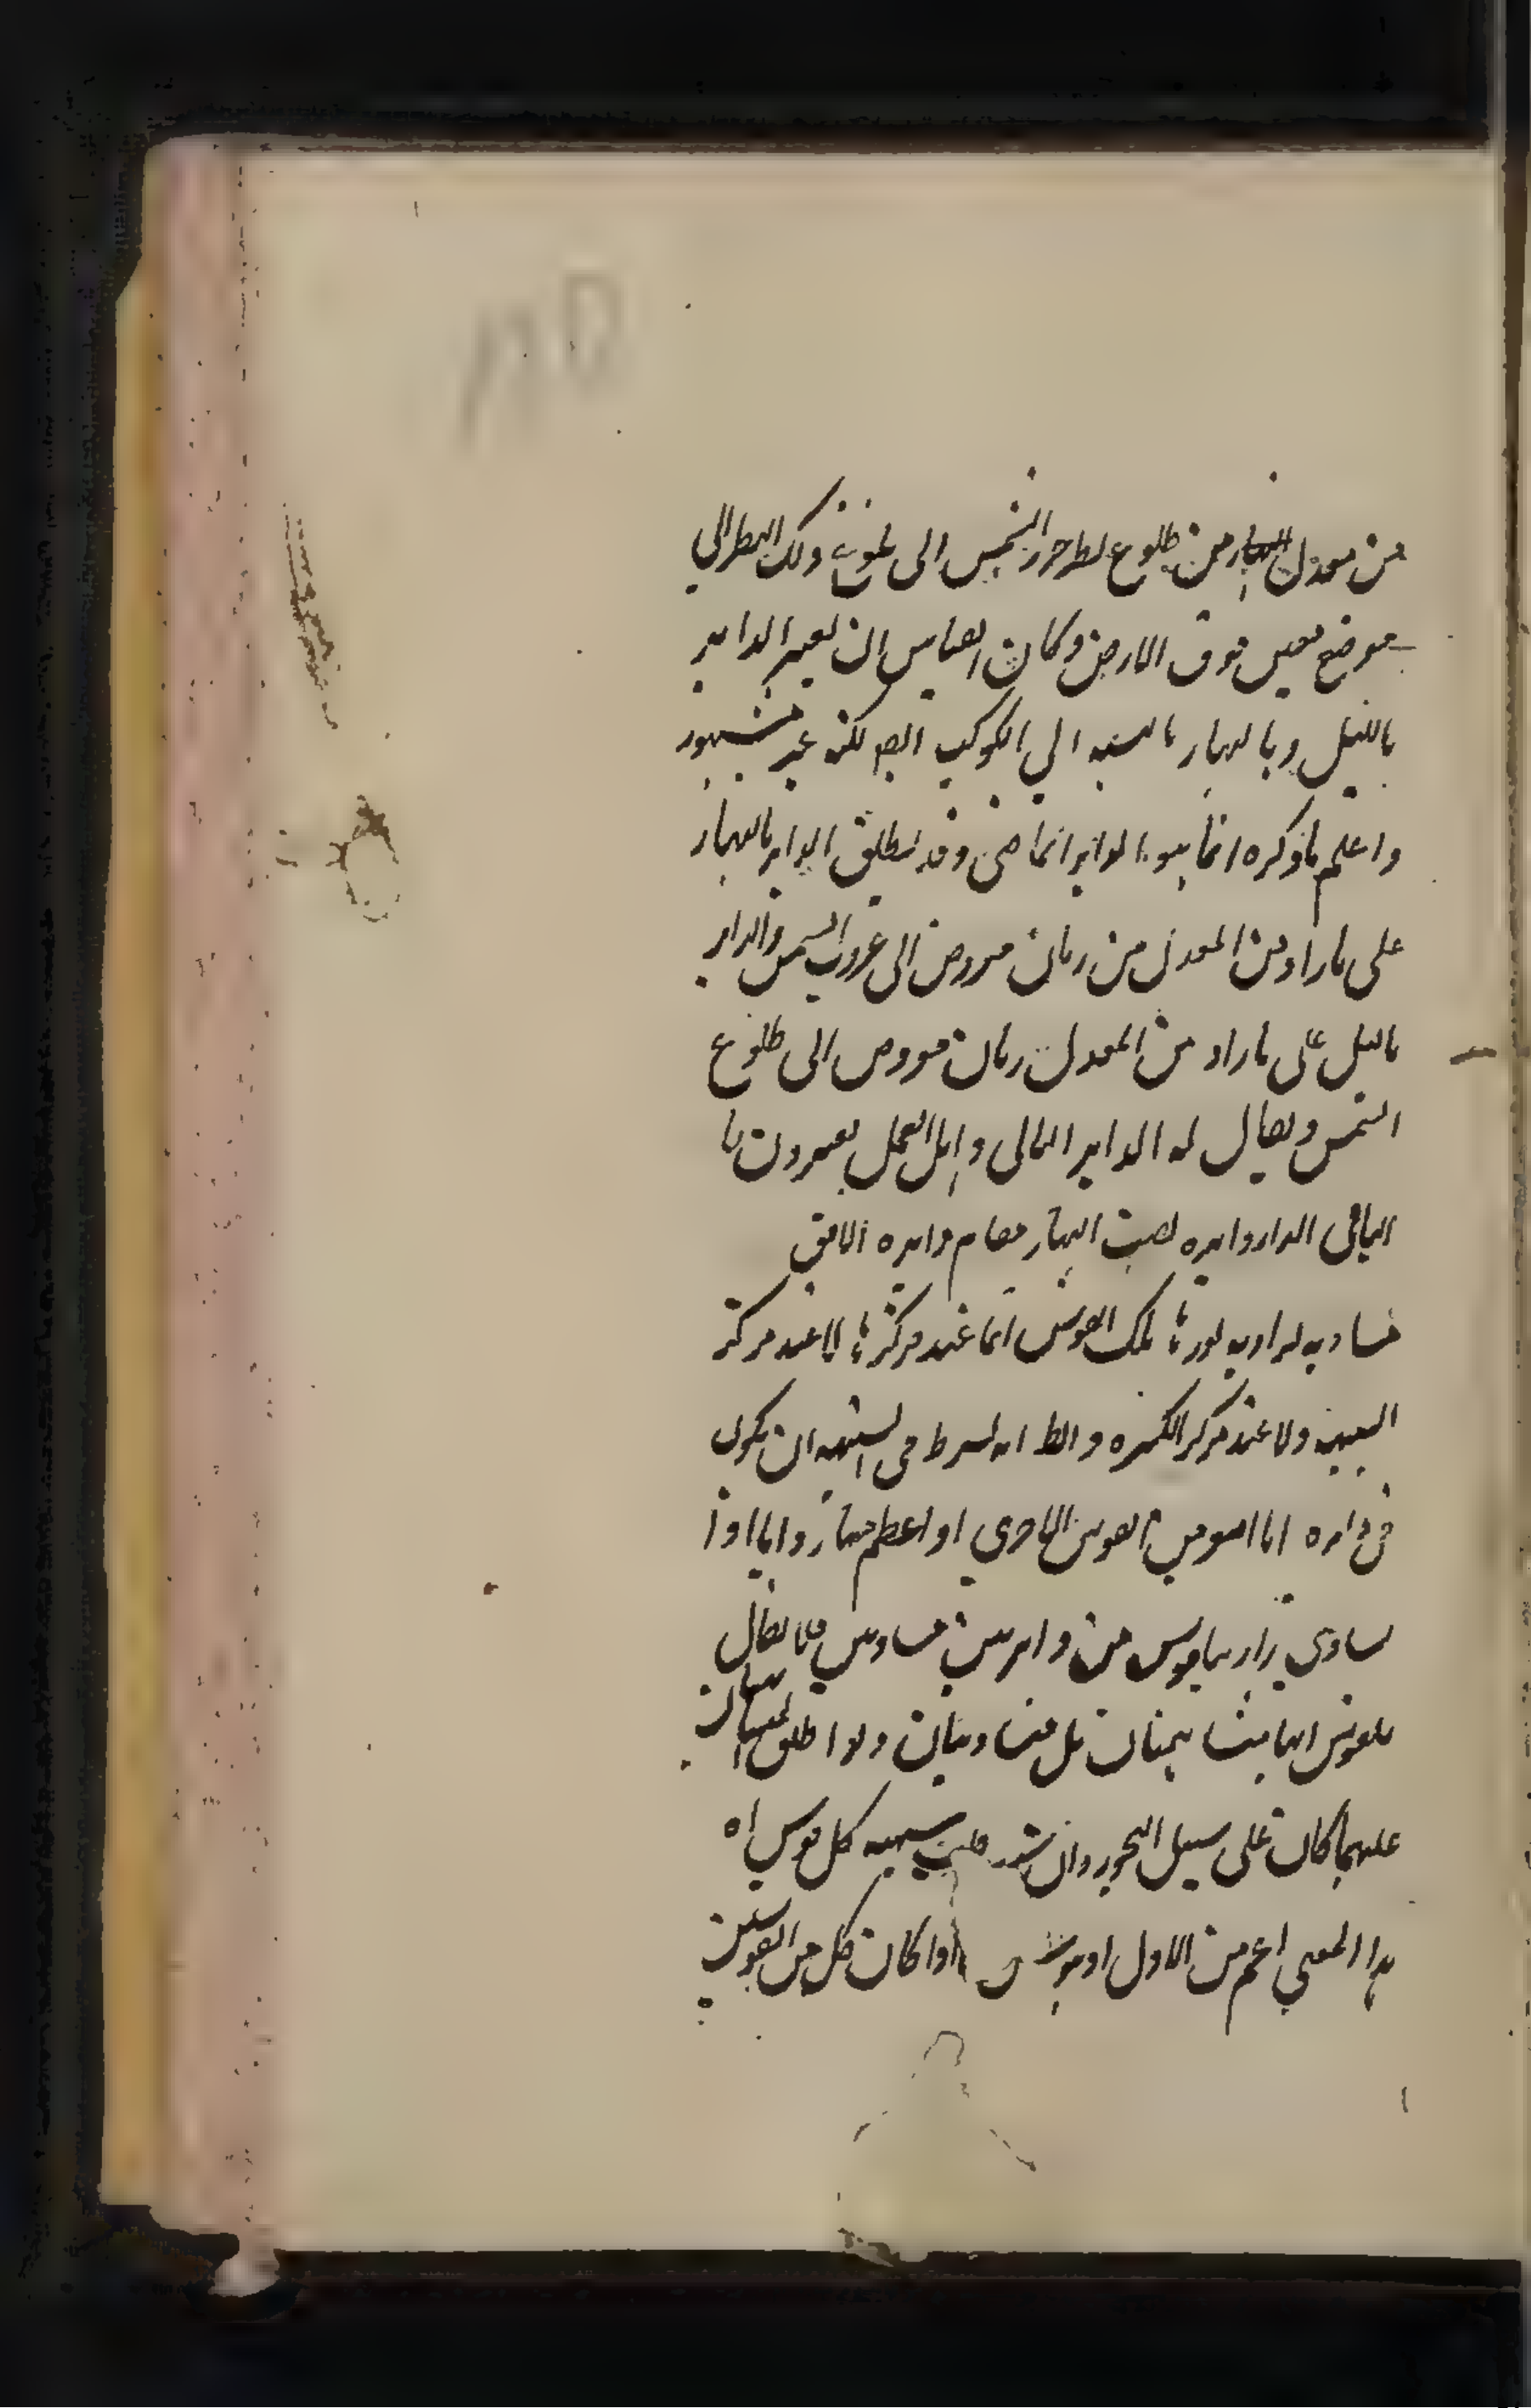 من معدل النهار من طلوع نظير جزء الشمس الى بلوغ ذلك النظير الي
موضع معين فوق الارض وكان القياس ان يعتبر الداير
بالليل وبالنهار بالنسبة الي الكوكب ايض لكنه غير مشهور
واعلم ما ذكره انما هو الداير الماضي وقد يطلق الداير بالنهار
على ما دار من المعدل من زمان مفروض الى غروب الشمس والداير
بالليل على ما دار من المعدل زمان مفروض الى طلوع
الشمس ويقال له الداير الباقي واهل العمل يعبرون
الباقي الدار دايره نصف النهار مقام دايره الافق
مساويه لزاويه تلك القوس انما عند مركزها لا عند مركز
ولا عند مركز الكره والظ انه يشترط في ان يكون
في دايره اما اصغر من القوس الاخري او اعظم منها واما اذا
تساوى من دايرتين متساويتين فلا يقال
للقوس انهما متشابهتان بل متساويتان ولو اطلق المتشابهتان
عليهما كان على سبيل التجوز وان شئت قلت شبيهه كل قوس اه
هذا المعني اعم من الاول اذا كان كل من القوسين